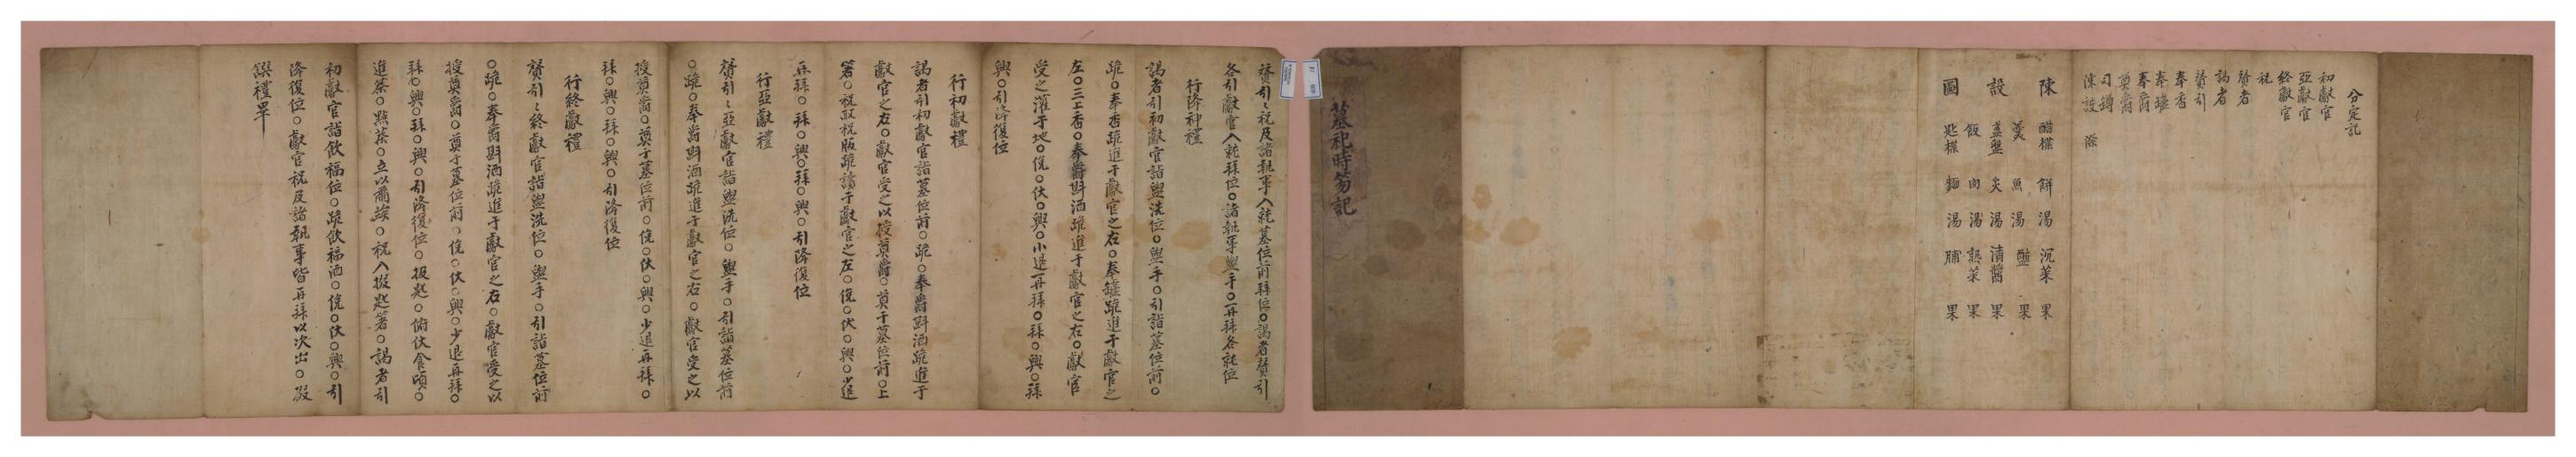 分定記
初獻官
亞獻官
終獻官
祝
贊者
謁者
贊引
奉香
奉罐
奉爵
奠爵
司罇
陳設 滌
陳 醋楪 餠 湯 沉菜 果
羹 魚 湯 醢 果
設 盞盤 炙 湯 清醬 果
飯 肉 湯 熟菜 果
圖 匙楪 麵 湯 脯 果
墓祀時笏記
贊引〻祝及諸執事入就墓位前拜位○謁者贊引
各引獻官入就拜位○諸執事盥手○再拜各就位
行降神禮
謁者引初獻官詣盥洗位○盥手○引詣墓位前○
跪○奉香跪進于獻官之右○奉罐跪進于獻官之
左○三上香○奉爵斟酒跪進于獻官之右○獻官
受之灌于地○俛○伏○興○小退再拜○拜○興○拜
興○引降復位
行初獻禮
謁者引初獻官詣墓位前○跪○奉爵斟酒跪進于
獻官之右○獻官受之以授奠爵○奠于墓位前○上
箸○祝取祝版跪讀于獻官之左○俛○伏○興○少退
再拜○拜○興○拜○興○引降復位
行亞獻禮
贊引〻亞獻官詣盥洗位○盥手○引詣墓位前
○跪○奉爵斟酒跪進于獻官之右○獻官受之以
授奠爵○奠于墓位前○俛○伏○興○少退再拜○
拜○興○拜○興○引降復位
行終獻禮
贊引〻終獻官詣盥洗位○盥手○引詣墓位前
○跪○奉爵斟酒跪進于獻官之右○獻官受之以
授奠爵○奠于墓位前○俛○伏○興○少退再拜○
拜○興○拜○興○引降復位○扱匙○俯伏食頃○
進茶○點茶○立以肅竢○祝入撤匙箸○謁者引
初獻官詣飮福位○跪飮福酒○俛○伏○興○引
降復位○獻官祝及諸執事皆再拜以次出○撤
饌禮畢